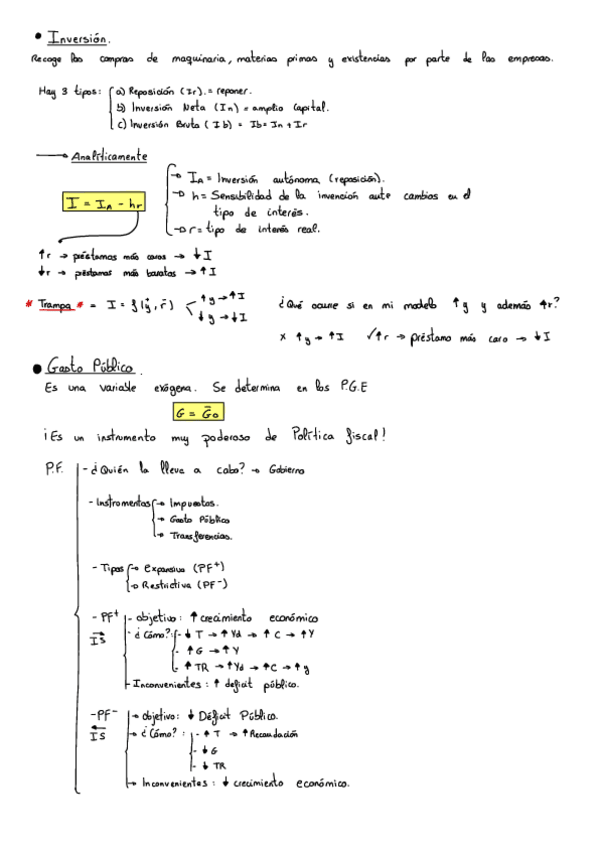 • Inversión.
Recoge las compras de maquinaria, materias primas y existencias por parte de las empresas.
Hay 3 tipos: a) Reposición (Ir). = reponer.
b) Inversión Neta (In) = amplio capital.
c) Inversión Bruta (Ib) = Ib = In + Ir
→ Analíticamente
I = IA - hr
→ IA = Inversión autónoma, (reposición).
→ h = Sensibilidad de la invención ante cambios en el
tipo de interés.
→ r = tipo de interés real.
↑r → préstamos más caros → ↓I
↓r → préstamos más baratos → ↑I
* Trampa * = I = f(y⁺, r⁻) ↑y → ↑I
↓y → ↓I
¿Qué ocurre si en mi modelo ↑y y además ↑r?
x ↑y → ↑I ✓↑r → préstamo más caro → ↓I
• Gasto Público.
Es una variable exógena. Se determina en los P.G.E
G = Ḡ₀
¡Es un instrumento muy poderoso de Política fiscal!
P.F. - ¿Quién la lleva a cabo? → Gobierno
- Instrumentos → Impuestos.
→ Gasto Público
→ Transferencias.
- Tipos → expansiva (PF⁺)
→ Restrictiva (PF⁻)
- PF⁺ - objetivo: ↑ crecimiento económico
IS→ - ¿Cómo?: - ↓T → ↑Yd → ↑C → ↑Y
- ↑G → ↑Y
- ↑TR → ↑Yd → ↑C → ↑y
- Inconvenientes: ↑ deficit público.
- PF⁻ → objetivo: ↓ Déficit Público.
IS← → ¿Cómo?: - ↑T → ↑Recaudación
- ↓G
- ↓TR
→ Inconvenientes: ↓ crecimiento económico.